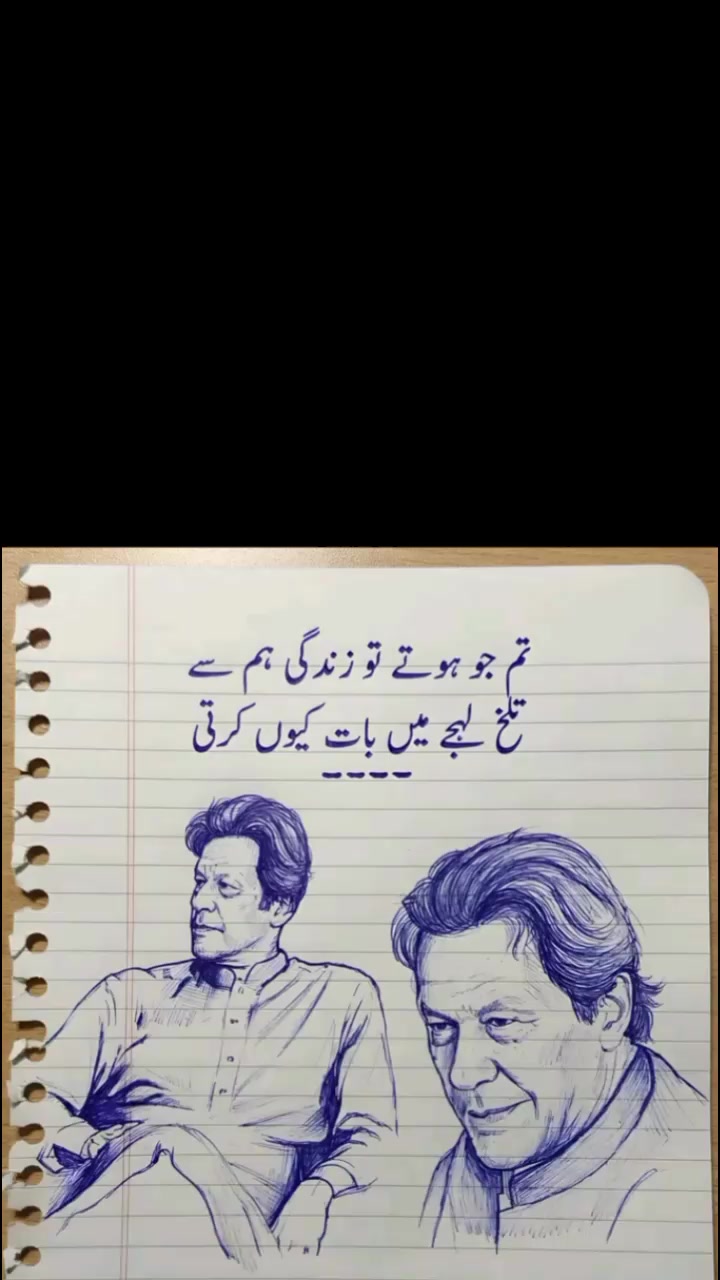 تم جو ہوتے تو زندگی ہم سے
تلخ لہجے میں بات کیوں کرتی
----